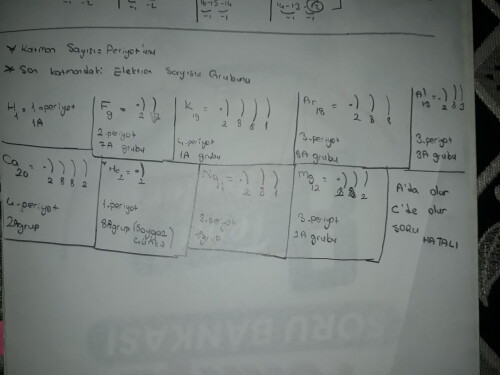 * Katman Sayısı Periyot'unu
* Son katmandaki Elektron Sayısı Grubunu
H1 = 1.periyot
1A
F9 = ·) ) 2 7
2.periyot
7A grubu
K19 = ·) ) ) ) 2 8 8 1
4.periyot
1A grubu
Ar18 = ·) ) ) 2 8 8
3.periyot
8A grubu
Al = ·) ) ) 2 8 3
3.periyot
3A grubu
Ca20 = ·) ) ) ) 2 8 8 2
4.periyot
2A grup
He2 = ·) 2
1.periyot
8A grup (Soygaz
Na11 = ·) ) ) 2 8 1
3.periyot
Mg12 = ·) ) ) 2 8 2
3.periyot
2A grubu
A'da olur
C'de olur
SORU
HATALI
SORU BANKASI